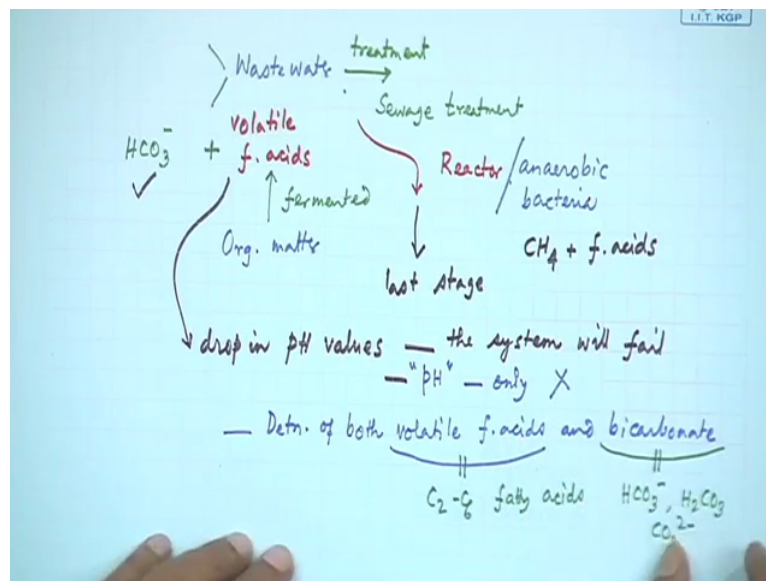 I.I.T. KGP
Wastewater treatment
Sewage treatment
HCO3⁻ + volatile f. acids
fermented
Org. matter
Reactor / anaerobic bacteria
CH4 + f. acids
last stage
drop in pH values — the system will fail
— "pH" — only X
— Detn. of both volatile f. acids and bicarbonate
C2-C6 fatty acids
HCO3⁻, H2CO3
CO3²⁻